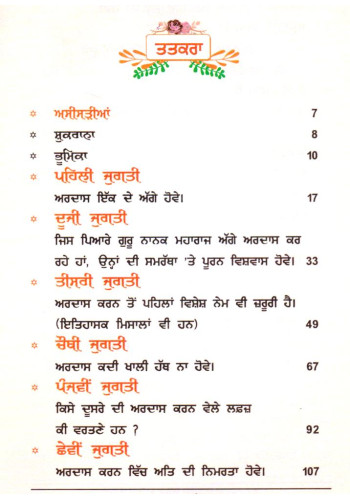 ਤਤਕਰਾ
ਅਸੀਸੜੀਆਂ 7
ਸ਼ੁਕਰਾਨਾ 8
ਭੂਮਿਕਾ 10
ਪਹਿਲੀ ਜੁਗਤੀ
ਅਰਦਾਸ ਇੱਕ ਦੇ ਅੱਗੇ ਹੋਵੇ। 17
ਦੂਜੀ ਜੁਗਤੀ
ਜਿਸ ਪਿਆਰੇ ਗੁਰੂ ਨਾਨਕ ਮਹਾਰਾਜ ਅੱਗੇ ਅਰਦਾਸ ਕਰ
ਰਹੇ ਹਾਂ, ਉਨ੍ਹਾਂ ਦੀ ਸਮਰੱਥਾ 'ਤੇ ਪੂਰਨ ਵਿਸ਼ਵਾਸ ਹੋਵੇ। 33
ਤੀਸਰੀ ਜੁਗਤੀ
ਅਰਦਾਸ ਕਰਨ ਤੋਂ ਪਹਿਲਾਂ ਵਿਸ਼ੇਸ਼ ਨੇਮ ਵੀ ਜ਼ਰੂਰੀ ਹੈ।
(ਇਤਿਹਾਸਕ ਮਿਸਾਲਾਂ ਵੀ ਹਨ) 49
ਚੌਥੀ ਜੁਗਤੀ
ਅਰਦਾਸ ਕਦੀ ਖਾਲੀ ਹੱਥ ਨਾ ਹੋਵੇ। 67
ਪੰਜਵੀਂ ਜੁਗਤੀ
ਕਿਸੇ ਦੂਸਰੇ ਦੀ ਅਰਦਾਸ ਕਰਨ ਵੇਲੇ ਲਫ਼ਜ਼
ਕੀ ਵਰਤਣੇ ਹਨ ? 92
ਛੇਵੀਂ ਜੁਗਤੀ
ਅਰਦਾਸ ਕਰਨ ਵਿੱਚ ਅਤਿ ਦੀ ਨਿਮਰਤਾ ਹੋਵੇ। 107